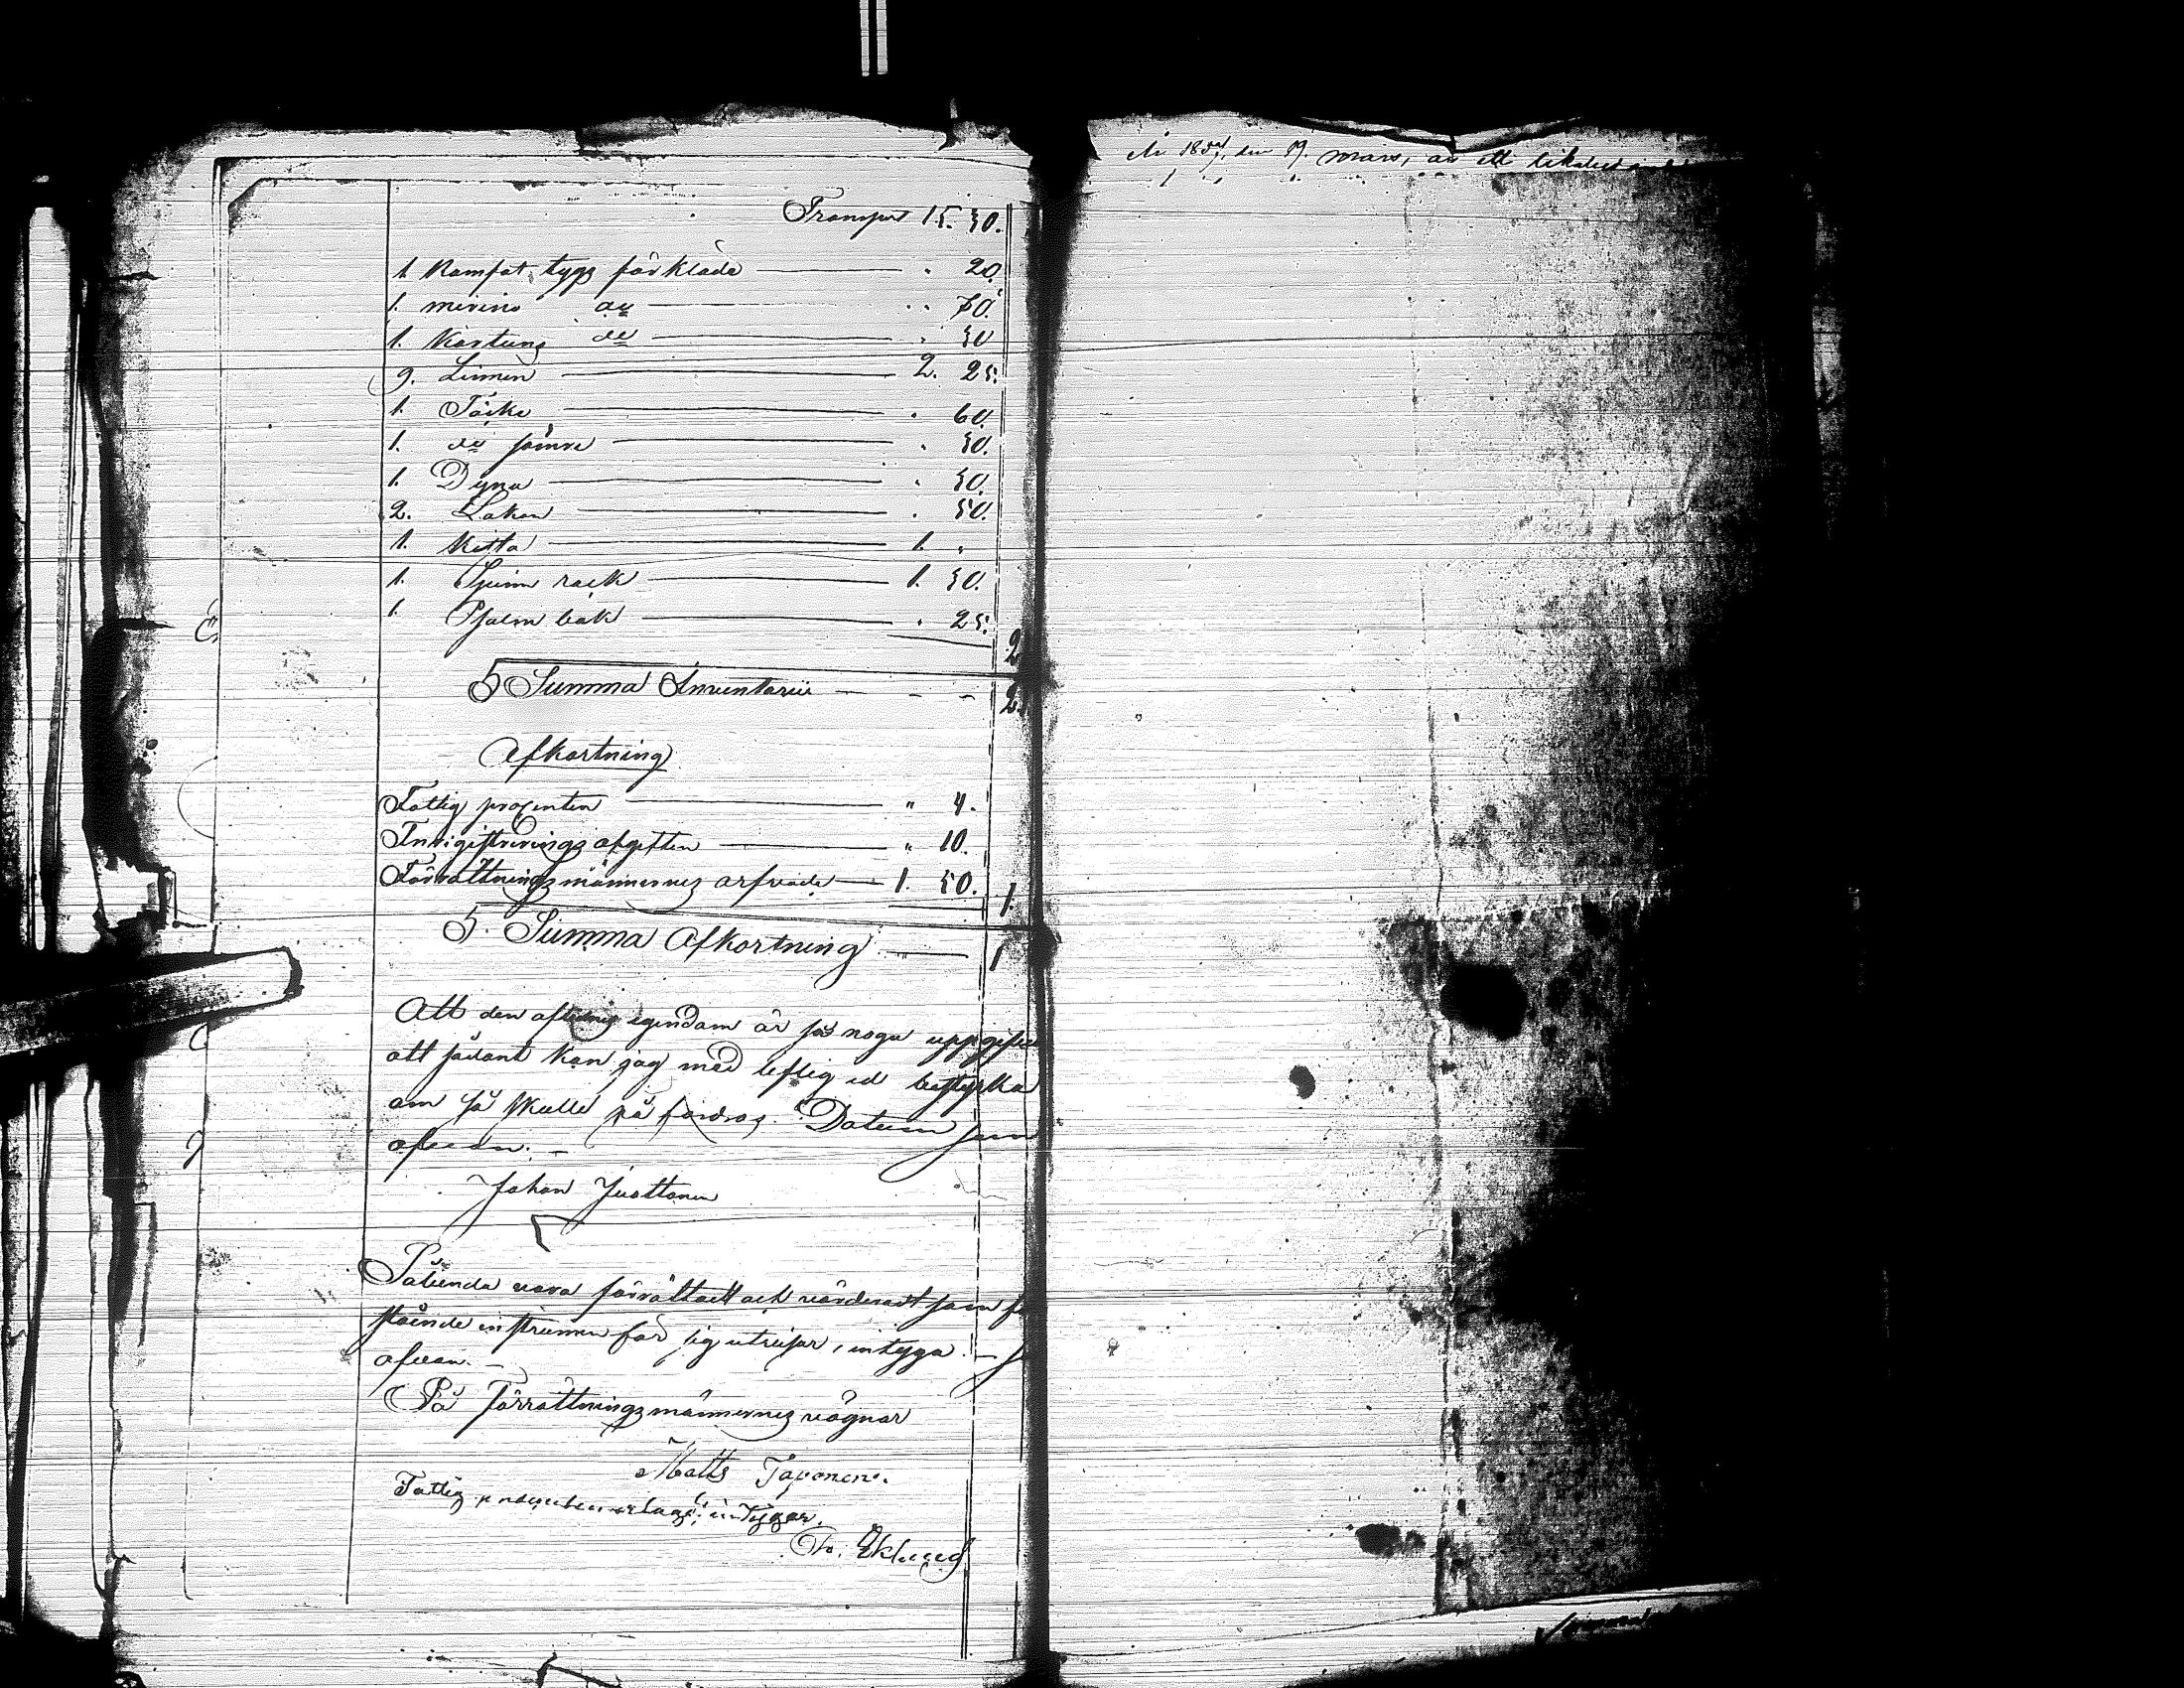 Transport 15. 50.
1. Kamfot tygs förkläde — . 20.
1. merino do — . 70.
1. Kartuns do — . 50
9. Linnen — 2. 25.
1. Täcke — . 60.
1. do sämre — . 50.
1. Dyna — . 50.
2. Lakan — . 50.
1. Kista — 1. .
1. Spinn rock — 1. 50.
1. Psalm bok — . 25.
2
S Summa Inventarii — 2
Afkortning
Fattig procenten — " 4.
Inregistrerings afgiften — " 10.
Förrättningsmännernes arfvode — 1. 50. 1.
S. Summa Afkortning — 1
Att den aflidnes egendom är så noga uppgifven
att sådant kan jag med liflig ed bestyrka
om så skulle på fordras. Datum som
ofvan. —
Johan Juottonen
Sålunda vara förrättadt och värderadt som
stående instrument för sig utvisar, intyga. —
ofvan. —
På Förrättningsmännernes vägnar
Matts Japonen.
Fattig procenten erlagt; intygar.
Eklund
den 19. Mars, ett